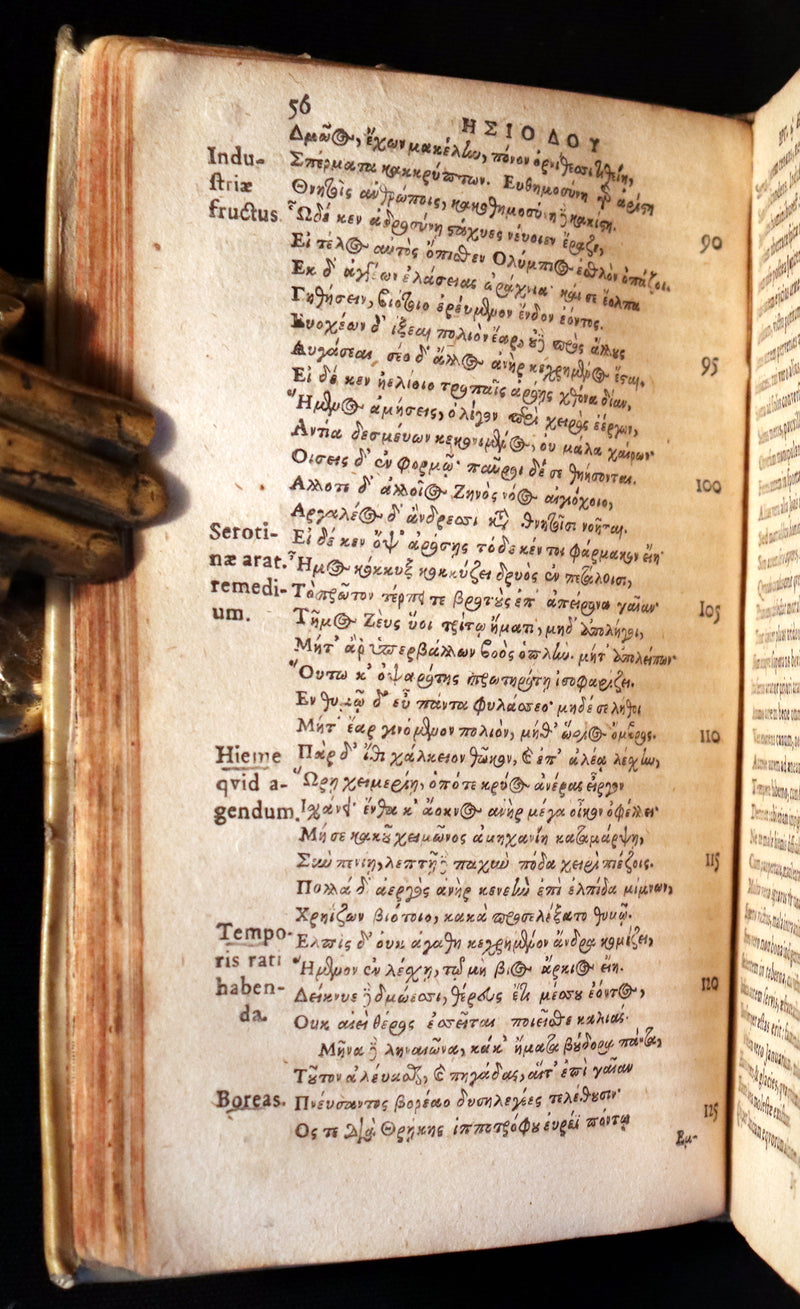 56
ΗΣΙΟΔΟΥ
Δμῶος, ἔχων μακέλην, πόνον ὀρνίθεσσι τιθείη,
Indu-
Σπέρματα κακκρύπτων. Εὐθημοσύνη γὰρ ἀρίστη
striæ
Θνητοῖς ἀνθρώποις, κακοθημοσύνη δὲ κακίστη.
fructus.
Ὧδέ κεν ἁδροσύνῃ στάχυες νεύοιεν ἔραζε,
90
Εἰ τέλος αὐτὸς ὄπισθεν Ολύμπιος ἐσθλὸν ὀπάζοι.
Εκ δ' ἀγγέων ἐλάσειας ἀράχνια· καί σε ἔολπα
Γηθήσειν, βιότοιο ἐρεύμενον ἔνδον ἐόντος.
Ευοχέων δ' ἵξεαι πολιὸν ἔαρ, οὐδὲ πρὸς ἄλλους
Αυγάσεαι, σέο δ' ἄλλος ἀνὴρ κεχρημένος ἔσται.
95
Ει δέ κεν ἠελίοιο τροπαῖς ἀρόης χθόνα δῖαν,
Ἥμενος ἀμήσεις, ὀλίγον περὶ χειρὸς ἐέργων,
Αντία δεσμεύων κεκονιμένος, ου μάλα χαίρων·
Οισεις δ' ἐν φορμῷ· παῦροι δέ σε θηήσονται.
Αλλοτε δ' ἀλλοῖος Ζηνὸς νόος αἰγιόχοιο,
100
Αργαλέος δ' ἄνδρεσσι κατὰ θνητοῖσι νοῆσαι.
Seroti-
Εἰ δέ κεν ὄψ' ἀρόσῃς τόδε κέν τοι φάρμακον εἴη·
næ arat.
Ἦμος κόκκυξ κοκκύζει δρυὸς ἐν πετάλοισι,
remedi-
Τὸ πρῶτον τέρπῃ τε βροτοὺς ἐπ' ἀπείρονα γαῖαν·
105
um.
Τῆμος Ζεὺς ὕοι τρίτῳ ἤματι, μηδ' ἀπολήγοι,
Μήτ' ἂρ ὑπερβάλλων βοὸς ὁπλὴν. μήτ' ἀπολείπων·
Οὕτω κ' ὀψαρότης πρωτηρότῃ ἰσοφαρίζοι.
Εν θυμῷ δ' εὖ πάντα φυλάσσεο· μηδέ σε λήθοι
Μήτ' ἔαρ γινόμενον πολιὸν, μήθ' ὥριος ὄμβρος.
110
Hieme
Πὰρ δ' ἴθι χάλκειον θῶκον, & ἐπ' ἀλέα λέσχην,
qvid a-
Ὥρῃ χειμερίῃ, ὁπότε κρύος ἀνέρας εἶργον
gendum.
Ἰχάνῃ· ἔνθα κ' ἄοκνος ἀνὴρ μέγα οἶκον ὀφέλλει·
Μή σε κακοῦ χειμῶνος ἀμηχανίη καταμάρψῃ,
Σὺν πενίῃ, λεπτῇ δὲ παχὺν πόδα χειρὶ πιέζοις.
115
Πολλὰ δ' ἀεργὸς ἀνὴρ κενεὴν ἐπὶ ἐλπίδα μίμνων,
Χρηΐζων βιότοιο, κακὰ προσελέξατο θυμῷ.
Tempo-
Ελπὶς δ' οὐκ ἀγαθὴ κεχρημένον ἄνδρα κομίζει,
ris rati
Ἥμενον ἐν λέσχῃ, τῷ μὴ βίος ἄρκιος εἴη.
haben-
Δείκνυε δὲ δμώεσσι, θέρους ἔτι μέσσου ἐόντος,
120
da.
Ουκ αἰεὶ θέρος ἐσσεῖται ποιεῖσθε καλιάς.
Μῆνα δὲ ληναιῶνα, κάκ' ἤματα βούδορα πάντα,
Τοῦτον ἀλεύασθαι, & πηγάδας, αἵτ' ἐπὶ γαῖαν
Boreas.
Πνεύσαντος βορέαο δυσηλεγέες τελέθουσιν·
Ος τε διὰ Θρῄκης ἱπποτρόφου εὐρέϊ πόντῳ
125
Εμ-